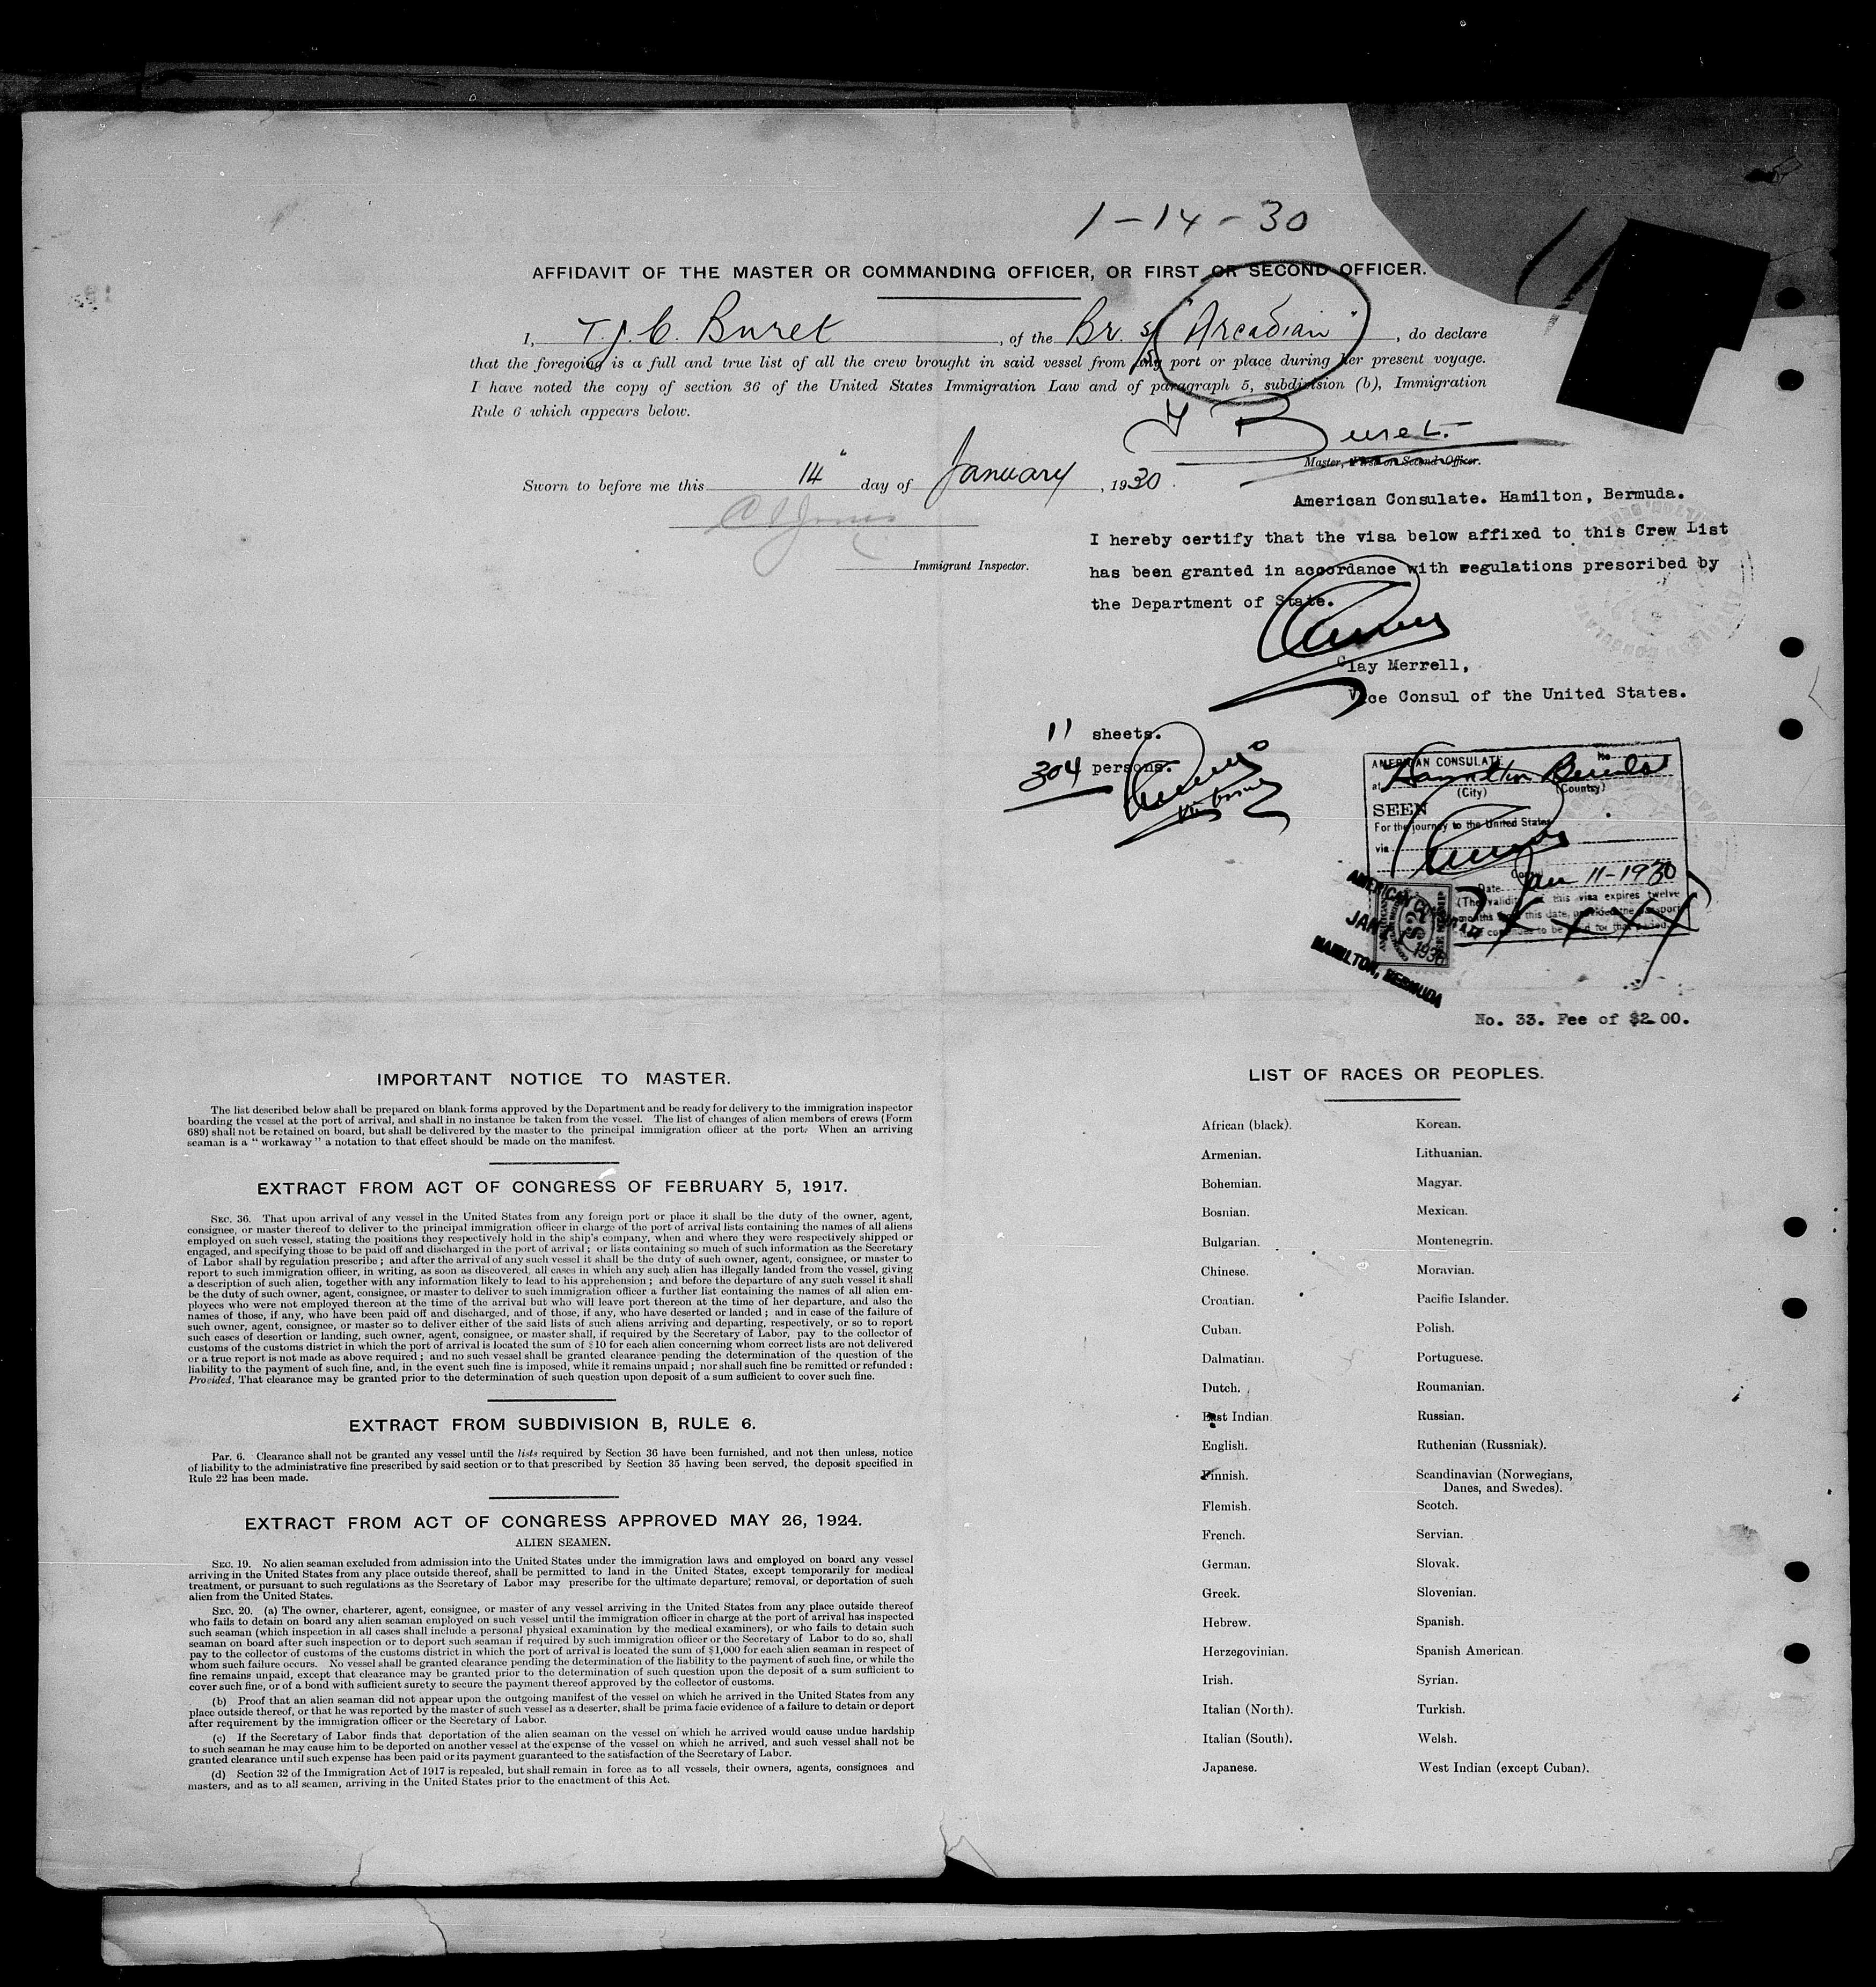 1-14-30
AFFIDAVIT OF THE MASTER OR COMMANDING OFFICER, OR FIRST OR SECOND OFFICER.
I, T.J.C. Buret, of the Br. S/S "Arcadian", do declare
that the foregoing is a full and true list of all the crew brought in said vessel from any port or place during her present voyage.
I have noted the copy of section 36 of the United States Immigration Law and of paragraph 5, subdivision (b), Immigration
Rule 6 which appears below.
Buret.
Master, First or Second Officer.
Sworn to before me this 14" day of January, 1930.
Immigrant Inspector.
American Consulate. Hamilton, Bermuda.
I hereby certify that the visa below affixed to this Crew List
has been granted in accordance with regulations prescribed by
the Department of State.
Clay Merrell,
Vice Consul of the United States.
11 sheets.
304 persons.
AMERICAN CONSULATE No
at Hamilton Bermuda
(City) (Country)
SEEN
For the journey to the United States
via
Consul
Date Jan 11-1930
(The validity of this visa expires twelve
months from this date, provided the passport
continues to be valid for that period.)
AMERICAN CONSULATE
JAN 11 1930
HAMILTON, BERMUDA
$2
No. 33. Fee of $2.00.
IMPORTANT NOTICE TO MASTER.
The list described below shall be prepared on blank forms approved by the Department and be ready for delivery to the immigration inspector
boarding the vessel at the port of arrival, and shall in no instance be taken from the vessel. The list of changes of alien members of crews (Form
689) shall not be retained on board, but shall be delivered by the master to the principal immigration officer at the port. When an arriving
seaman is a "workaway" a notation to that effect should be made on the manifest.
EXTRACT FROM ACT OF CONGRESS OF FEBRUARY 5, 1917.
SEC. 36. That upon arrival of any vessel in the United States from any foreign port or place it shall be the duty of the owner, agent,
consignee, or master thereof to deliver to the principal immigration officer in charge of the port of arrival lists containing the names of all aliens
employed on such vessel, stating the positions they respectively hold in the ship's company, when and where they were respectively shipped or
engaged, and specifying those to be paid off and discharged in the port of arrival; or lists containing so much of such information as the Secretary
of Labor shall by regulation prescribe; and after the arrival of any such vessel it shall be the duty of such owner, agent, consignee, or master to
report to such immigration officer, in writing, as soon as discovered, all cases in which any such alien has illegally landed from the vessel, giving
a description of such alien, together with any information likely to lead to his apprehension; and before the departure of any such vessel it shall
be the duty of such owner, agent, consignee, or master to deliver to such immigration officer a further list containing the names of all alien em-
ployees who were not employed thereon at the time of the arrival but who will leave port thereon at the time of her departure, and also the
names of those, if any, who have been paid off and discharged, and of those, if any, who have deserted or landed; and in case of the failure of
such owner, agent, consignee, or master so to deliver either of the said lists of such aliens arriving and departing, respectively, or so to report
such cases of desertion or landing, such owner, agent, consignee, or master shall, if required by the Secretary of Labor, pay to the collector of
customs of the customs district in which the port of arrival is located the sum of $10 for each alien concerning whom correct lists are not delivered
or a true report is not made as above required; and no such vessel shall be granted clearance pending the determination of the question of the
liability to the payment of such fine, and, in the event such fine is imposed, while it remains unpaid; nor shall such fine be remitted or refunded:
Provided, That clearance may be granted prior to the determination of such question upon deposit of a sum sufficient to cover such fine.
EXTRACT FROM SUBDIVISION B, RULE 6.
Par. 6. Clearance shall not be granted any vessel until the lists required by Section 36 have been furnished, and not then unless, notice
of liability to the administrative fine prescribed by said section or to that prescribed by Section 35 having been served, the deposit specified in
Rule 22 has been made.
EXTRACT FROM ACT OF CONGRESS APPROVED MAY 26, 1924.
ALIEN SEAMEN.
SEC. 19. No alien seaman excluded from admission into the United States under the immigration laws and employed on board any vessel
arriving in the United States from any place outside thereof, shall be permitted to land in the United States, except temporarily for medical
treatment, or pursuant to such regulations as the Secretary of Labor may prescribe for the ultimate departure, removal, or deportation of such
alien from the United States.
SEC. 20. (a) The owner, charterer, agent, consignee, or master of any vessel arriving in the United States from any place outside thereof
who fails to detain on board any alien seaman employed on such vessel until the immigration officer in charge at the port of arrival has inspected
such seaman (which inspection in all cases shall include a personal physical examination by the medical examiners), or who fails to detain such
seaman on board after such inspection or to deport such seaman if required by such immigration officer or the Secretary of Labor to do so, shall
pay to the collector of customs of the customs district in which the port of arrival is located the sum of $1,000 for each alien seaman in respect of
whom such failure occurs. No vessel shall be granted clearance pending the determination of the liability to the payment of such fine, or while the
fine remains unpaid, except that clearance may be granted prior to the determination of such question upon the deposit of a sum sufficient to
cover such fine, or of a bond with sufficient surety to secure the payment thereof approved by the collector of customs.
(b) Proof that an alien seaman did not appear upon the outgoing manifest of the vessel on which he arrived in the United States from any
place outside thereof, or that he was reported by the master of such vessel as a deserter, shall be prima facie evidence of a failure to detain or deport
after requirement by the immigration officer or the Secretary of Labor.
(c) If the Secretary of Labor finds that deportation of the alien seaman on the vessel on which he arrived would cause undue hardship
to such seaman he may cause him to be deported on another vessel at the expense of the vessel on which he arrived, and such vessel shall not be
granted clearance until such expense has been paid or its payment guaranteed to the satisfaction of the Secretary of Labor.
(d) Section 32 of the Immigration Act of 1917 is repealed, but shall remain in force as to all vessels, their owners, agents, consignees and
masters, and as to all seamen, arriving in the United States prior to the enactment of this Act.
LIST OF RACES OR PEOPLES.
African (black).
Armenian.
Bohemian.
Bosnian.
Bulgarian.
Chinese.
Croatian.
Cuban.
Dalmatian.
Dutch.
East Indian.
English.
Finnish.
Flemish.
French.
German.
Greek.
Hebrew.
Herzegovinian.
Irish.
Italian (North).
Italian (South).
Japanese.
Korean.
Lithuanian.
Magyar.
Mexican.
Montenegrin.
Moravian.
Pacific Islander.
Polish.
Portuguese.
Roumanian.
Russian.
Ruthenian (Russniak).
Scandinavian (Norwegians,
Danes, and Swedes).
Scotch.
Servian.
Slovak.
Slovenian.
Spanish.
Spanish American.
Syrian.
Turkish.
Welsh.
West Indian (except Cuban).